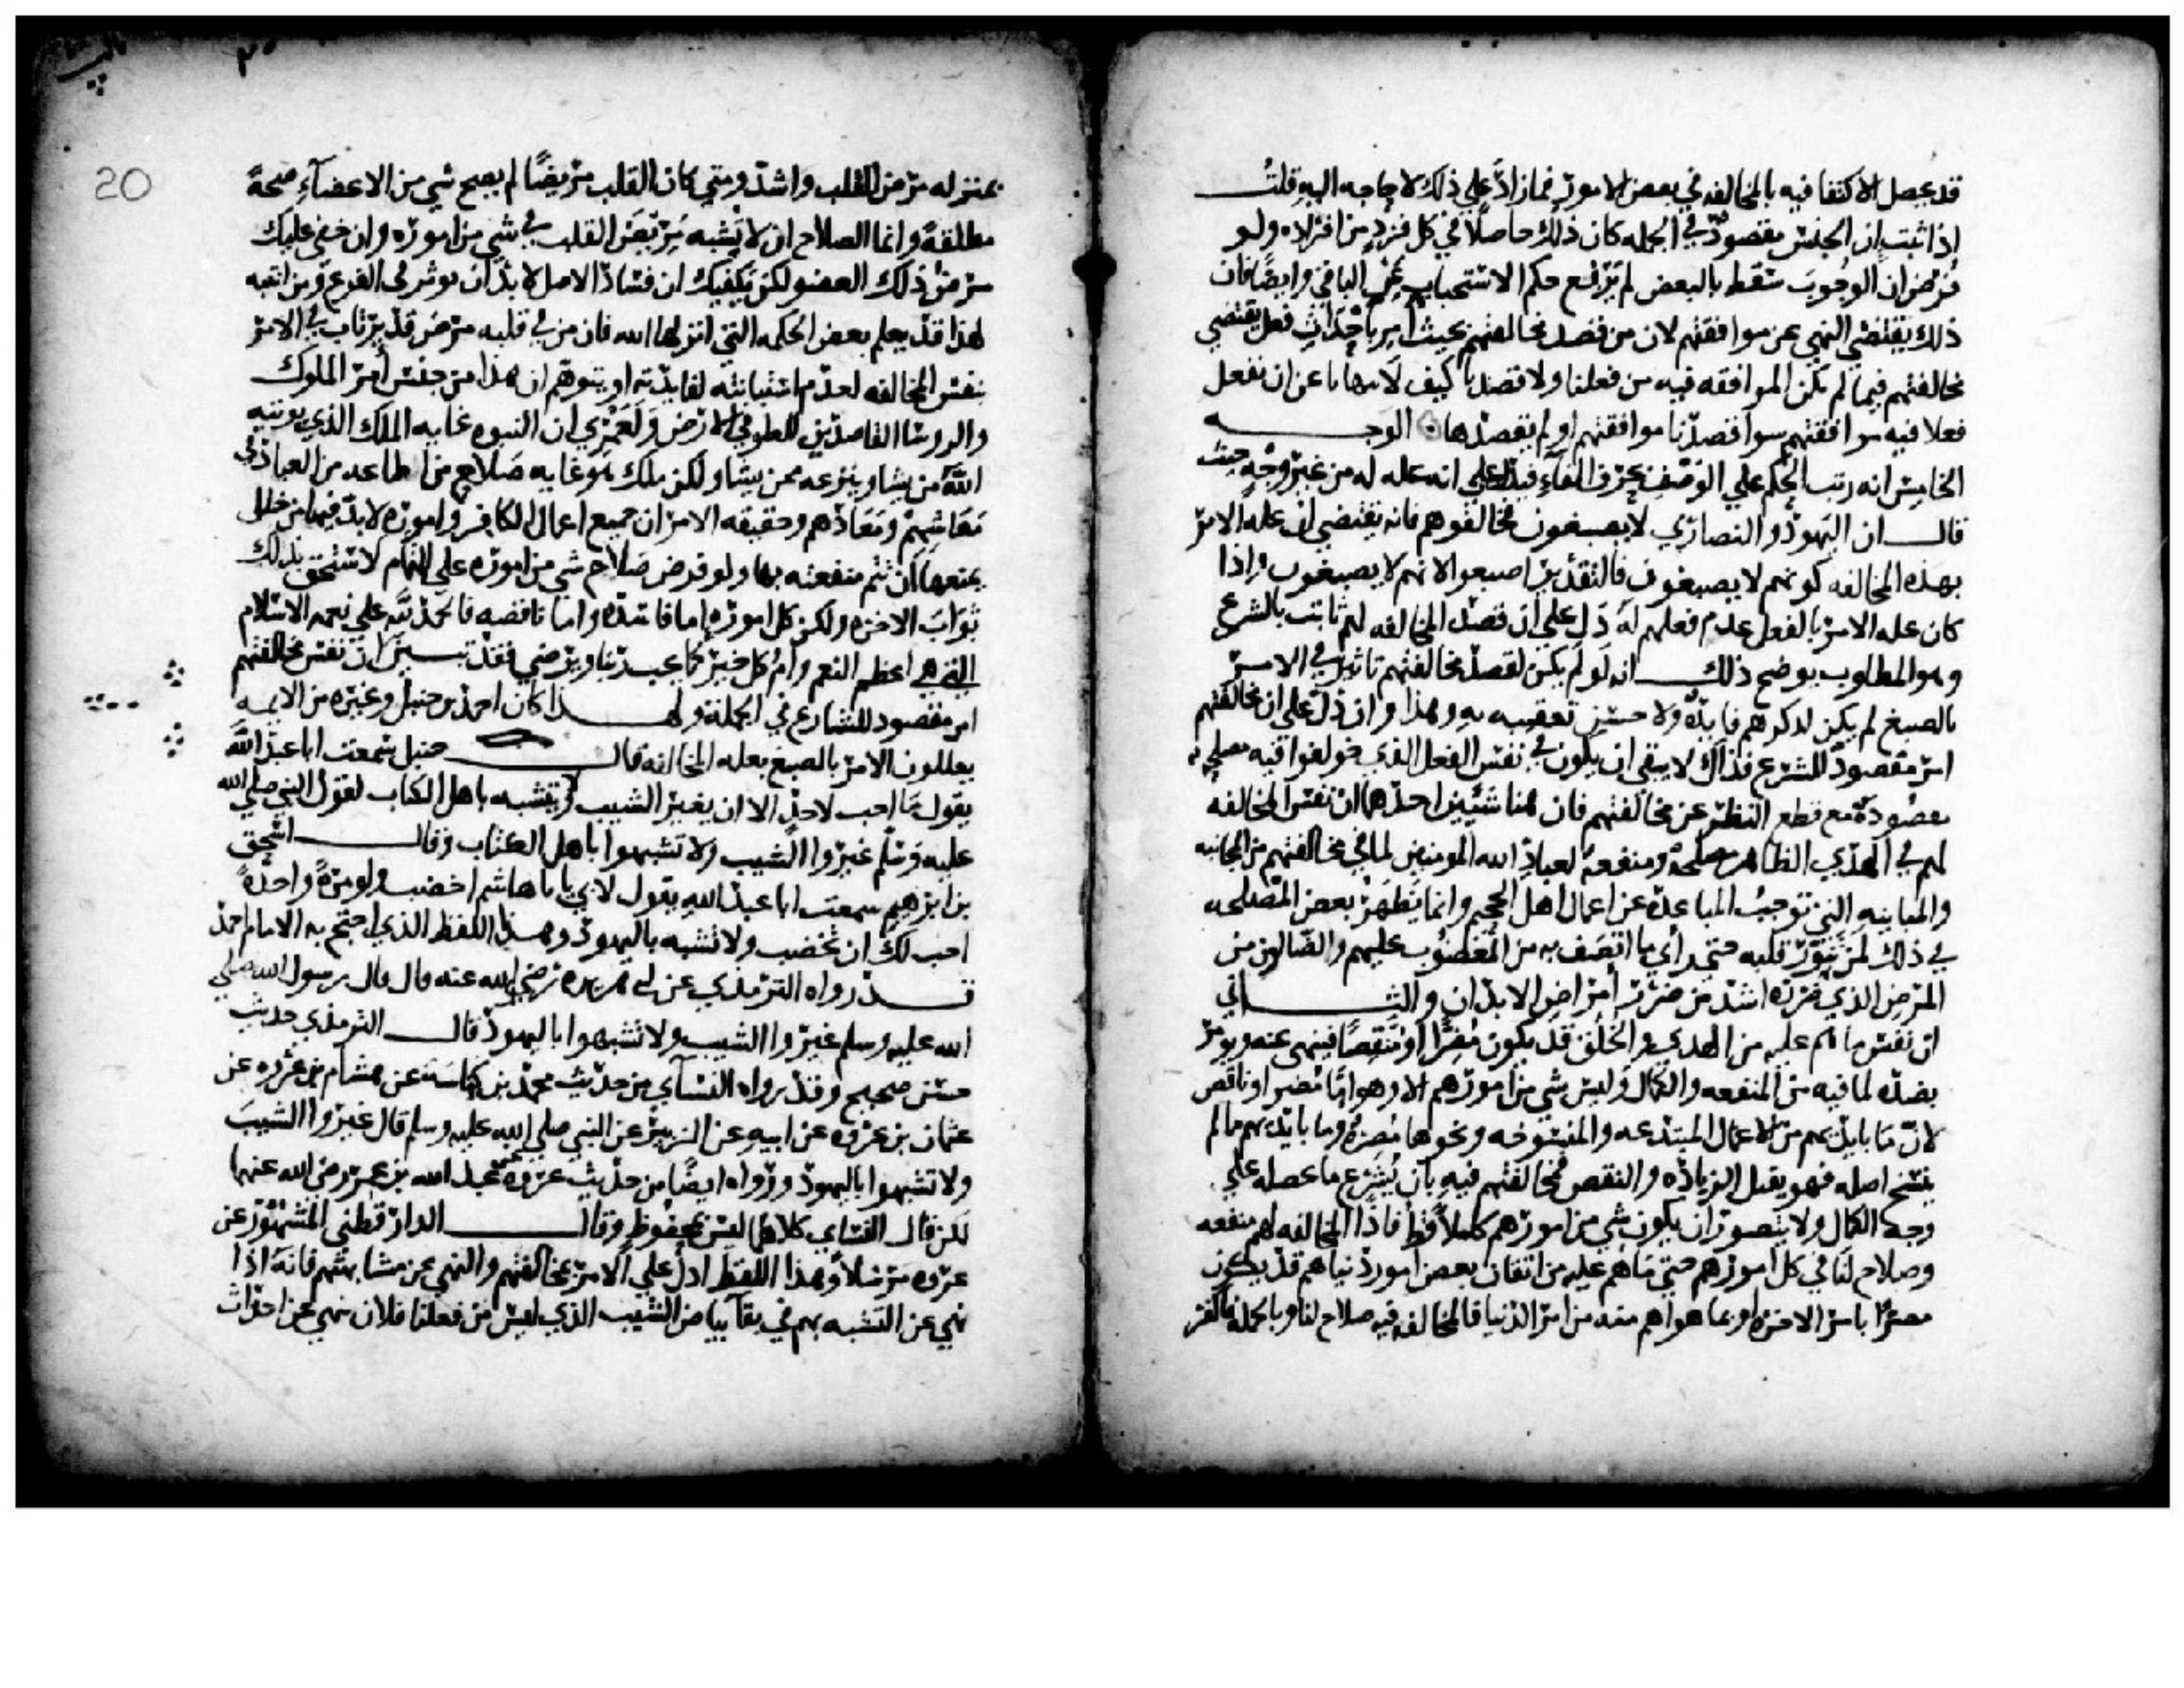 قد يحصل الاكتفا فيه بالمخالفه في بعض الامور فما زاد علي ذلك لا حاجه اليه قلت
اذا ثبت ان الجنس مقصود في الجمله كان ذلك حاصلا في كل فرد من افراده ولو
فرض ان الوجوب سقط بالبعض لم يرفع حكم الاستحباب عن الباقي وايضا فان
ذلك يقتضي النهي عن موافقتهم لان من قصد مخالفتهم بحيث امر باحداث فعل يقتضي
مخالفتهم فيما لم يكن الموافقه فيه من فعلنا ولا قصدنا كيف لا ينهانا عن ان نفعل
فعلا فيه موافقتهم سوا قصدنا موافقتهم او لم نقصدها الوجه
الخامس انه رتب الحكم علي الوصف بحرف الفاء فيدل علي انه عله له من غير وجه حيث
قال ان اليهود والنصاري لا يصبغون فخالفوهم فانه يقتضي ان عله الامر
بهذه المخالفه كونهم لا يصبغون فالتقدير اصبغوا لانهم لا يصبغون واذا
كان عله الامر بالفعل عدم فعلهم له دل علي ان قصد المخالفه لهم ثابت بالشرع
وهو المطلوب يوضح ذلك انه لو لم يكن لقصد مخالفتهم تاثير في الامر
بالصبغ لم يكن لذكرهم فايده ولا حسن تعقيبه به وهذا وان دل علي ان مخالفتهم
امر مقصود للشرع فذاك لا ينفي ان يكون في نفس الفعل الذي خولفوا فيه مصلحه
مقصودة مع قطع النظر عن مخالفتهم فان هنا شيئين احدهما ان نفس المخالفه
لهم في الهدي الظاهر مصلحة ومنفعة لعباد الله المومنين لما في مخالفتهم من المجانبه
والمباينه التي توجب المباعدة عن اعمال اهل الجحيم وانما يظهر بعض المصلحه
في ذلك لمن تنور قلبه حتي راي ما اتصف به من المغضوب عليهم والضالين من
المرض الذي ضرره اشد من ضرر امراض الابدان والثاني
ان نفس ما هم عليه من الهدي والخلق قد يكون مضرا او منقصا فينهي عنه ويومر
بضده لما فيه من المنفعه والكمال وليس شي من امورهم الا وهو اما مضر او ناقص
لان ما بايديهم من الاعمال المبتدعه والمنسوخه ونحوها مضرة وما بايديهم مما لم
ينسخ اصله فهو يقبل الزياده والنقص فمخالفتهم فيه بان يشرع ما يحصله علي
وجه الكمال ولا يتصور ان يكون شي من امورهم كاملا قط فاذا المخالفه لهم منفعه
وصلاح لنا في كل امورهم حتي ما هم عليه من اتقان بعض امور دنياهم قد يكون
مضرا بامر الاخره او بما هو اهم منه من امر الدنيا فالمخالفه فيه صلاح لنا وبالجمله فالكفر
٢٠
20
بمنزله مرض القلب واشد ومتي كان القلب مريضا لم يصح شي من الاعضاء صحة
مطلقة وانما الصلاح ان لا تشبه مريض القلب في شي من اموره وان خفي عليك
مرض ذلك العضو لكن يكفيك ان فساد الاصل لا بد ان يوثر في الفرع ومن انتبه
لهذا قد يعلم بعض الحكمه التي انزلها الله فان من في قلبه مرض قد يرتاب في الامر
بنفس المخالفه لعدم استبانته لفايدته او يتوهم ان هذا من جنس امر الملوك
والروسا القاصدين للعلو في الارض ولعمري ان النبوه غايه الملك الذي يوتيه
الله من يشا وينزعه ممن يشا ولكن ملك هو غايه صلاح من اطاعه من العباد في
معاشهم ومعادهم وحقيقه الامر ان جميع اعمال الكافر واموره لا بد فيها من خلل
يمنعها ان تتم منفعته بها ولو فرض صلاح شي من اموره علي التمام لاستحق بذلك
ثواب الاخره ولكن كل اموره اما فاسده واما ناقصه فالحمد لله علي نعمه الاسلام
التي هي اعظم النعم وام كل خير كما يحب ربنا ويرضي فقد تبين ان نفس مخالفتهم
امر مقصود للشارع في الجملة ولهذا كان احمد بن حنبل وغيره من الايمه
يعللون الامر بالصبغ بعله المخالفه قال حنبل سمعت ابا عبد الله
يقول ما احب لاحد الا ان يغير الشيب ولا يتشبه باهل الكتاب لقول النبي صلي الله
عليه وسلم غيروا الشيب ولا تشبهوا باهل الكتاب وقال اسحق
بن ابرهيم سمعت ابا عبد الله يقول لابي يا با هاشم اخضب ولو مرة واحدة
احب لك ان تخضب ولا تشبه باليهود وهذا اللفظ الذي احتج به الامام احمد
قد رواه الترمذي عن ابي هريره رضي الله عنه قال قال رسول الله صلي
الله عليه وسلم غيروا الشيب ولا تشبهوا باليهود قال الترمذي حديث
حسن صحيح وقد رواه النسآي من حديث محمد بن كناسة عن هشام بن عروه عن
عثمان بن عروه عن ابيه عن الزبير عن النبي صلي الله عليه وسلم قال غيروا الشيب
ولا تشبهوا باليهود ورواه ايضا من حديث عروه عن عبد الله بن عمر رضي الله عنهما
لكن قال النساي كلاهما ليس بمحفوظ وقال الدارقطني المشهور عن
عروه مرسلا وهذا اللفظ ادل علي الامر بمخالفتهم والنهي عن مشابهتهم فانه اذا
نهي عن التشبه بهم في بقآ بياض الشيب الذي ليس من فعلنا فلان ينهي عن احداث